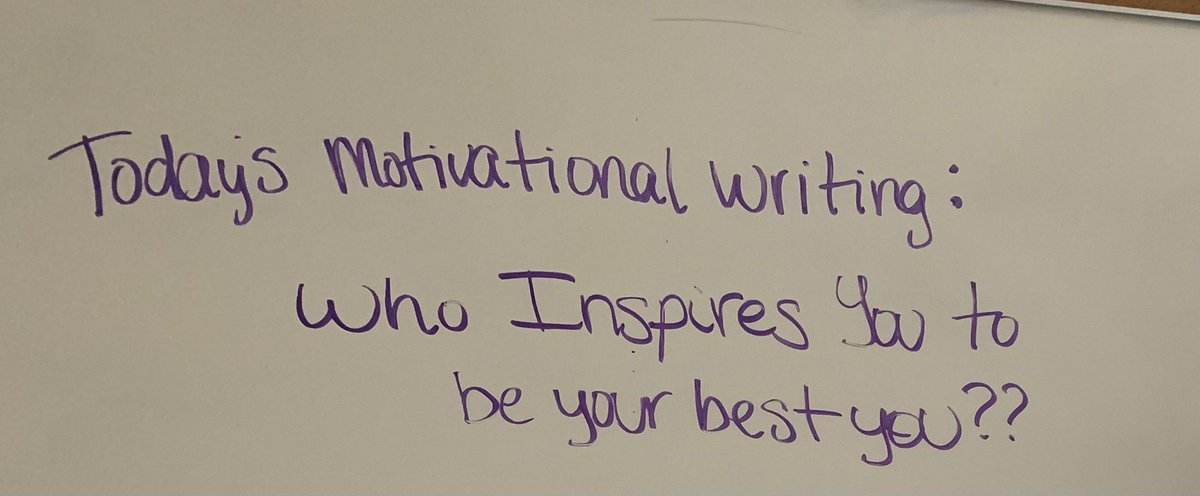 Today's Motivational Writing:
Who Inspires You to
be your best you??